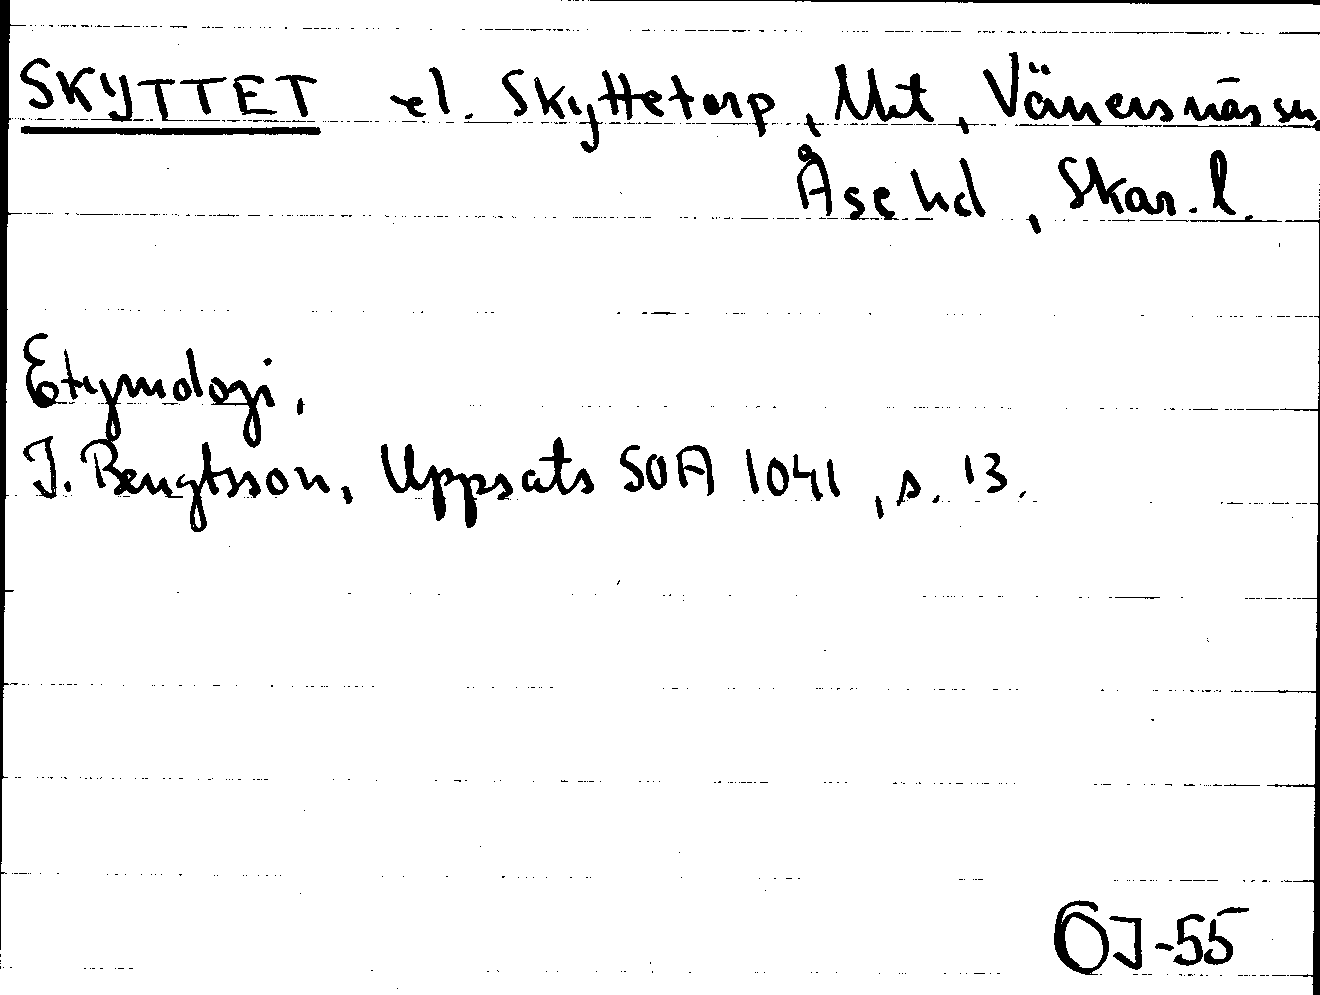 SKYTTET el. Skyttetorp, Mt, Vänersnäs sn,
Åse hd, Skar. l.
Etymologi,
I. Bengtsson, Uppsats SOA 1041, s. 13.
OJ-55